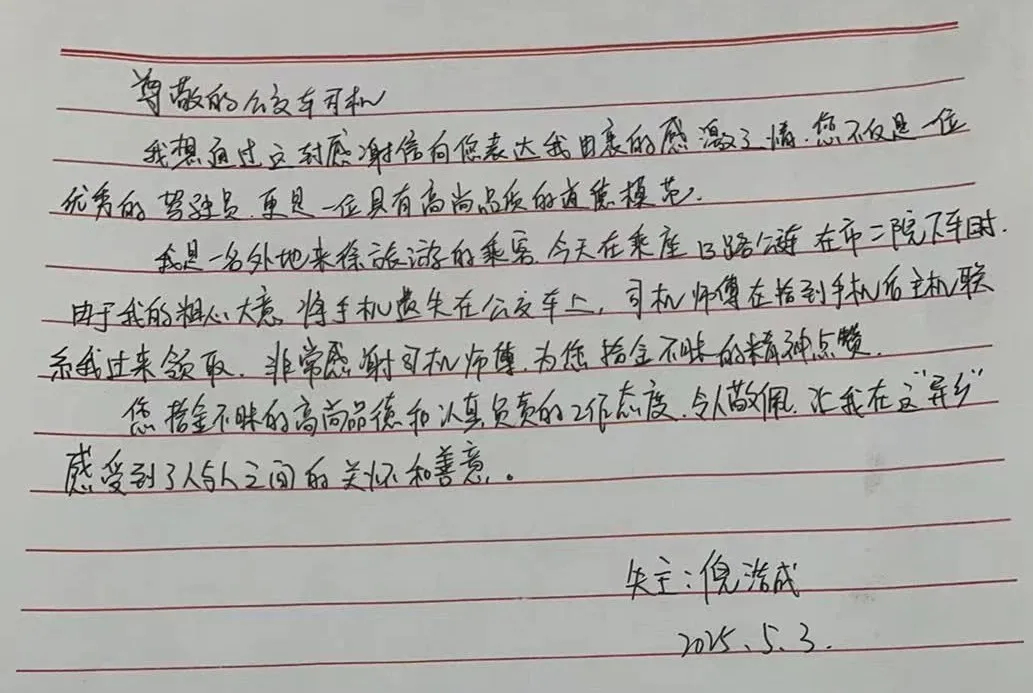 尊敬的公交车司机
我想通过这封感谢信向您表达我由衷的感激之情.您不仅是一位
优秀的驾驶员.更是一位具有高尚品质的道德模范.
我是一名外地来徐旅游的乘客.今天在乘座13路公交在市二院下车时.
由于我的粗心大意.将手机遗失在公交车上,司机师傅在拾到手机后主机联
系我过来领取.非常感谢司机师傅.为您拾金不昧的精神点赞.
您拾金不昧的高尚品德和认真负责的工作态度.令人敬佩.让我在这"异乡"
感受到了人与人之间的关怀和善意。
失主:倪浩成
2025.5.3.